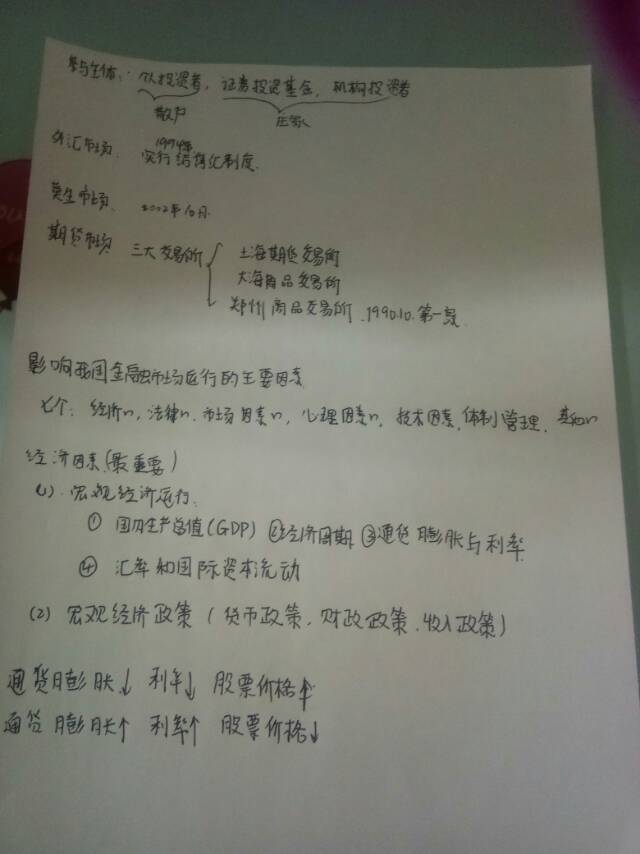 参与主体：个人投资者，证券投资基金，机构投资者
散户 庄家
外汇市场：1994年 实行结售汇制度.
黄金市场. 2002年10月.
期货市场 三大交易所
上海期货交易所
大连商品交易所
郑州商品交易所.1990.10.第一家.
影响我国金融市场运行的主要因素.
七个：经济〃，法律〃.市场因素〃，心理因素〃，技术因素.体制管理.其他〃
经济因素(最重要)
(1).宏观经济运行.
①国内生产总值(GDP) ②经济周期 ③通货膨胀与利率
④ 汇率和国际资本流动
(2) 宏观经济政策(货币政策，财政政策.收入政策)
通货膨胀↓ 利率↓ 股票价格↑
通货膨胀↑ 利率↑ 股票价格↓